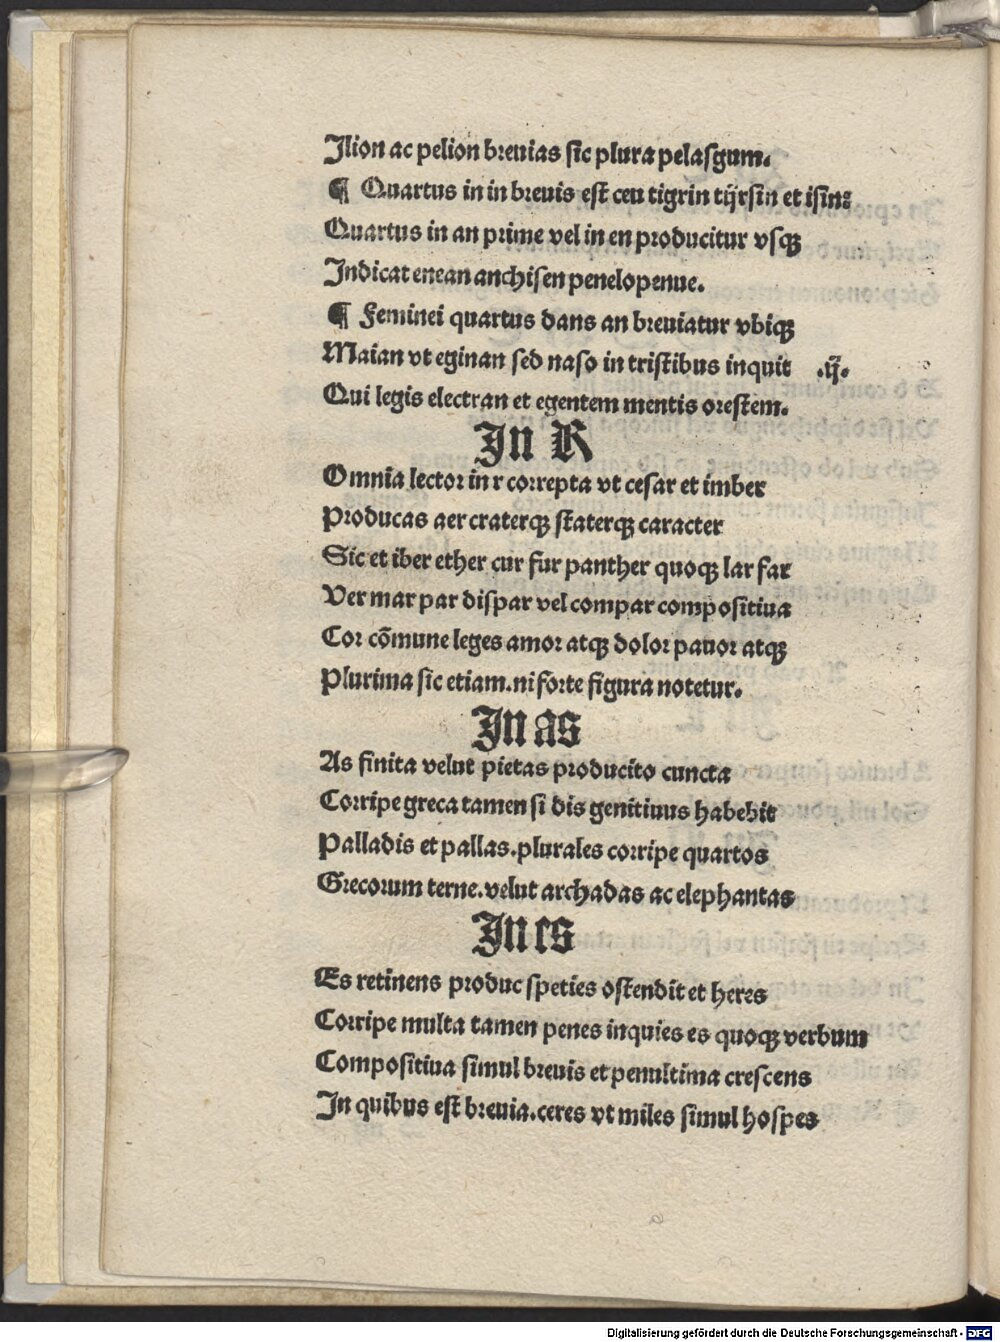 Ilion ac pelion breuias sic plura pelasgum.
¶ Quartus in in breuis est ceu tigrin tyrsin et isin:
Quartus in an prime vel in en producitur vsqꝫ
Indicat enean anchisen penelopenue.
¶ Feminei quartus dans an breuiatur vbiqꝫ
Maian vt eginan sed naso in tristibus inquit .ij.
Qui legis electran et egentem mentis orestem.
In R
Omnia lector in r correpta vt cesar et imber
Producas aer craterqꝫ staterqꝫ caracter
Sic et iber ether cur fur panther quoqꝫ lar far
Ver mar par dispar vel compar compositiua
Cor cõmune leges amor atqꝫ dolor pauor atqꝫ
Plurima sic etiam.ni forte figura notetur.
In as
As finita velut pietas producito cuncta
Corripe greca tamen si dis genitiuus habebit
Palladis et pallas.plurales corripe quartos
Grecorum terne.velut archadas ac elephantas
In es
Es retinens produc speties ostendit et heres
Corripe multa tamen penes inquies es quoqꝫ verbum
Compositiua simul breuis et penultima crescens
In quibus est breuia.ceres vt miles simul hospes
Digitalisierung gefördert durch die Deutsche Forschungsgemeinschaft - DFG